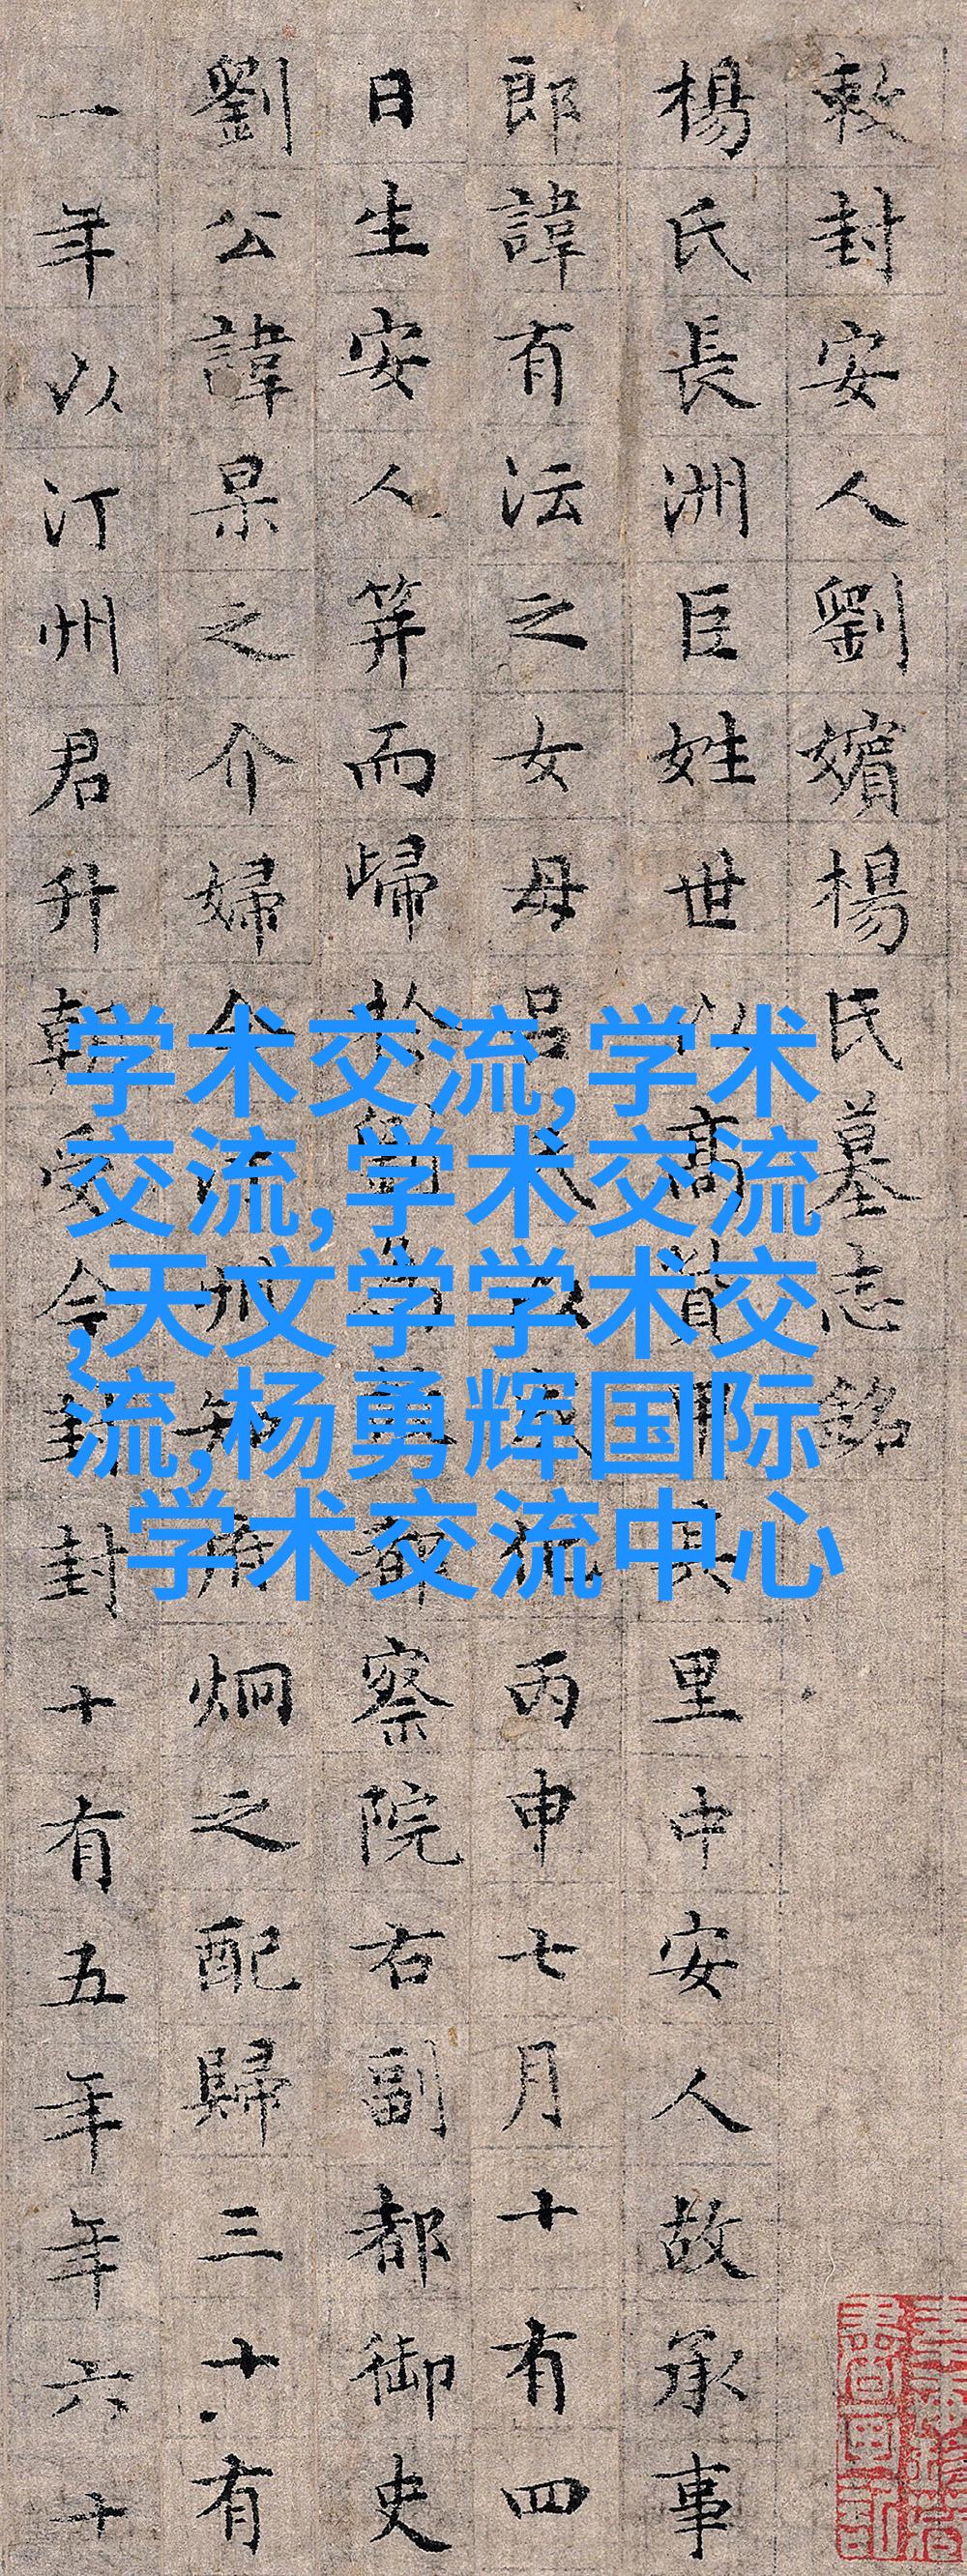 敕封安人劉嬪楊氏墓志銘
楊氏長洲巨姓世以高貲甲其里中安人故承事
郎諱有沄之女母呂氏以成化丙申七月十有四
日生安人笄而歸於劉為都察院右副都御史
劉公諱杲之介婦今汀州知府炯之配歸三十有
一年以汀州君升朝受今封封十有五年年六十
学术交流,学术
交流,学术交流
,天文学学术交
流,杨勇辉国际
学术交流中心